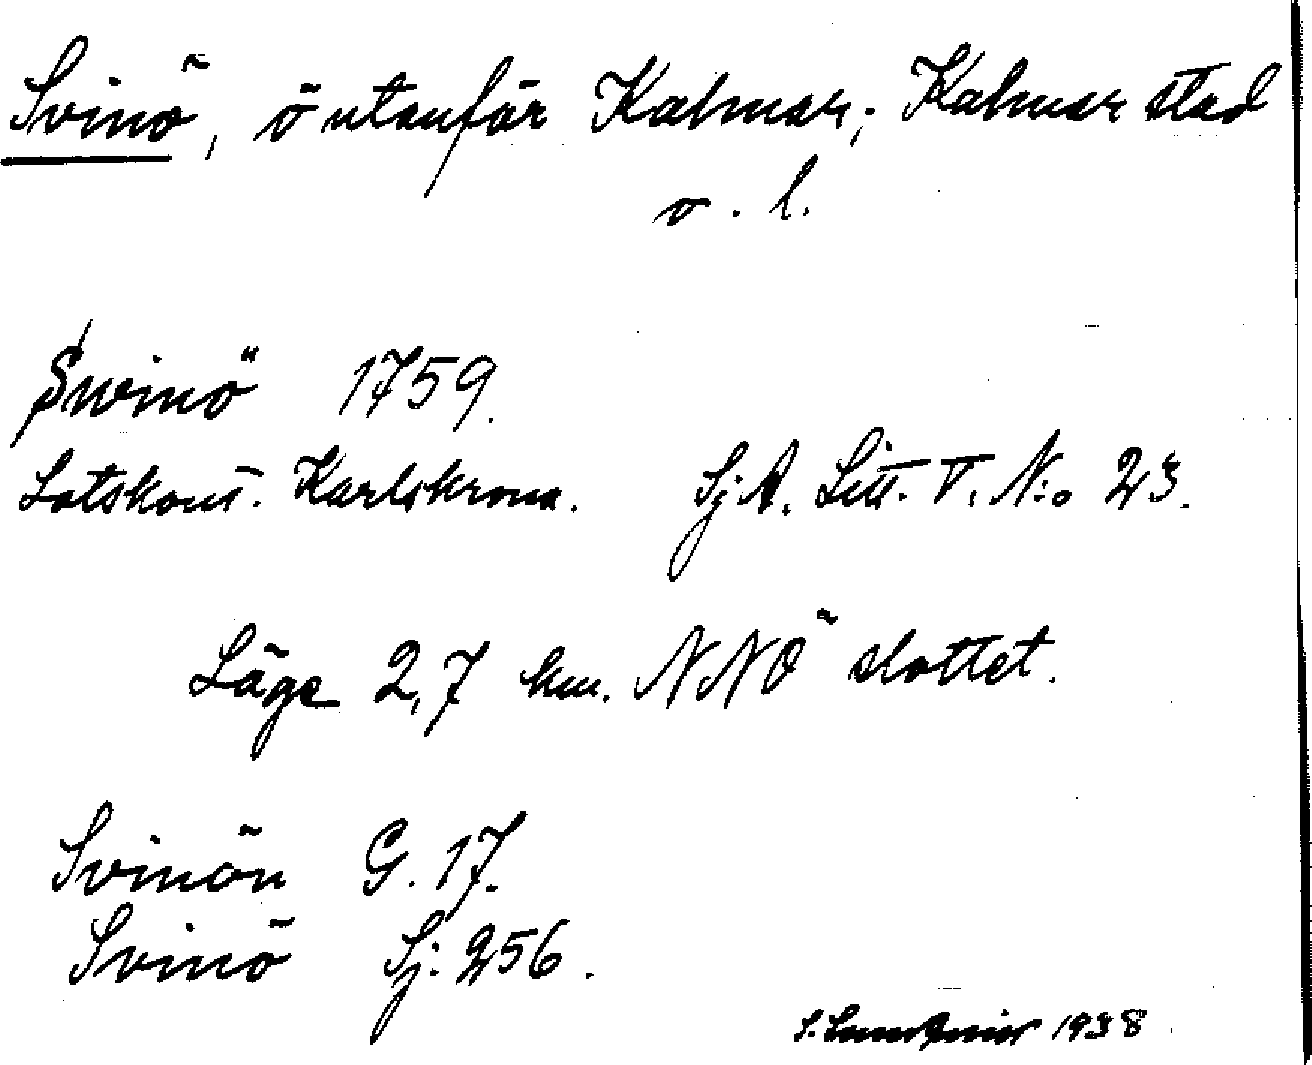 Svinö, ö utanför Kalmar; Kalmar stad
o. l.
Swinö 1759.
Lotskont. Karlskrona. Sj.A. Litt. T. N:o 23.
Läge 2,7 km. NNÖ slottet.
Svinön G. 17.
Svinö Sj. 256.
1938